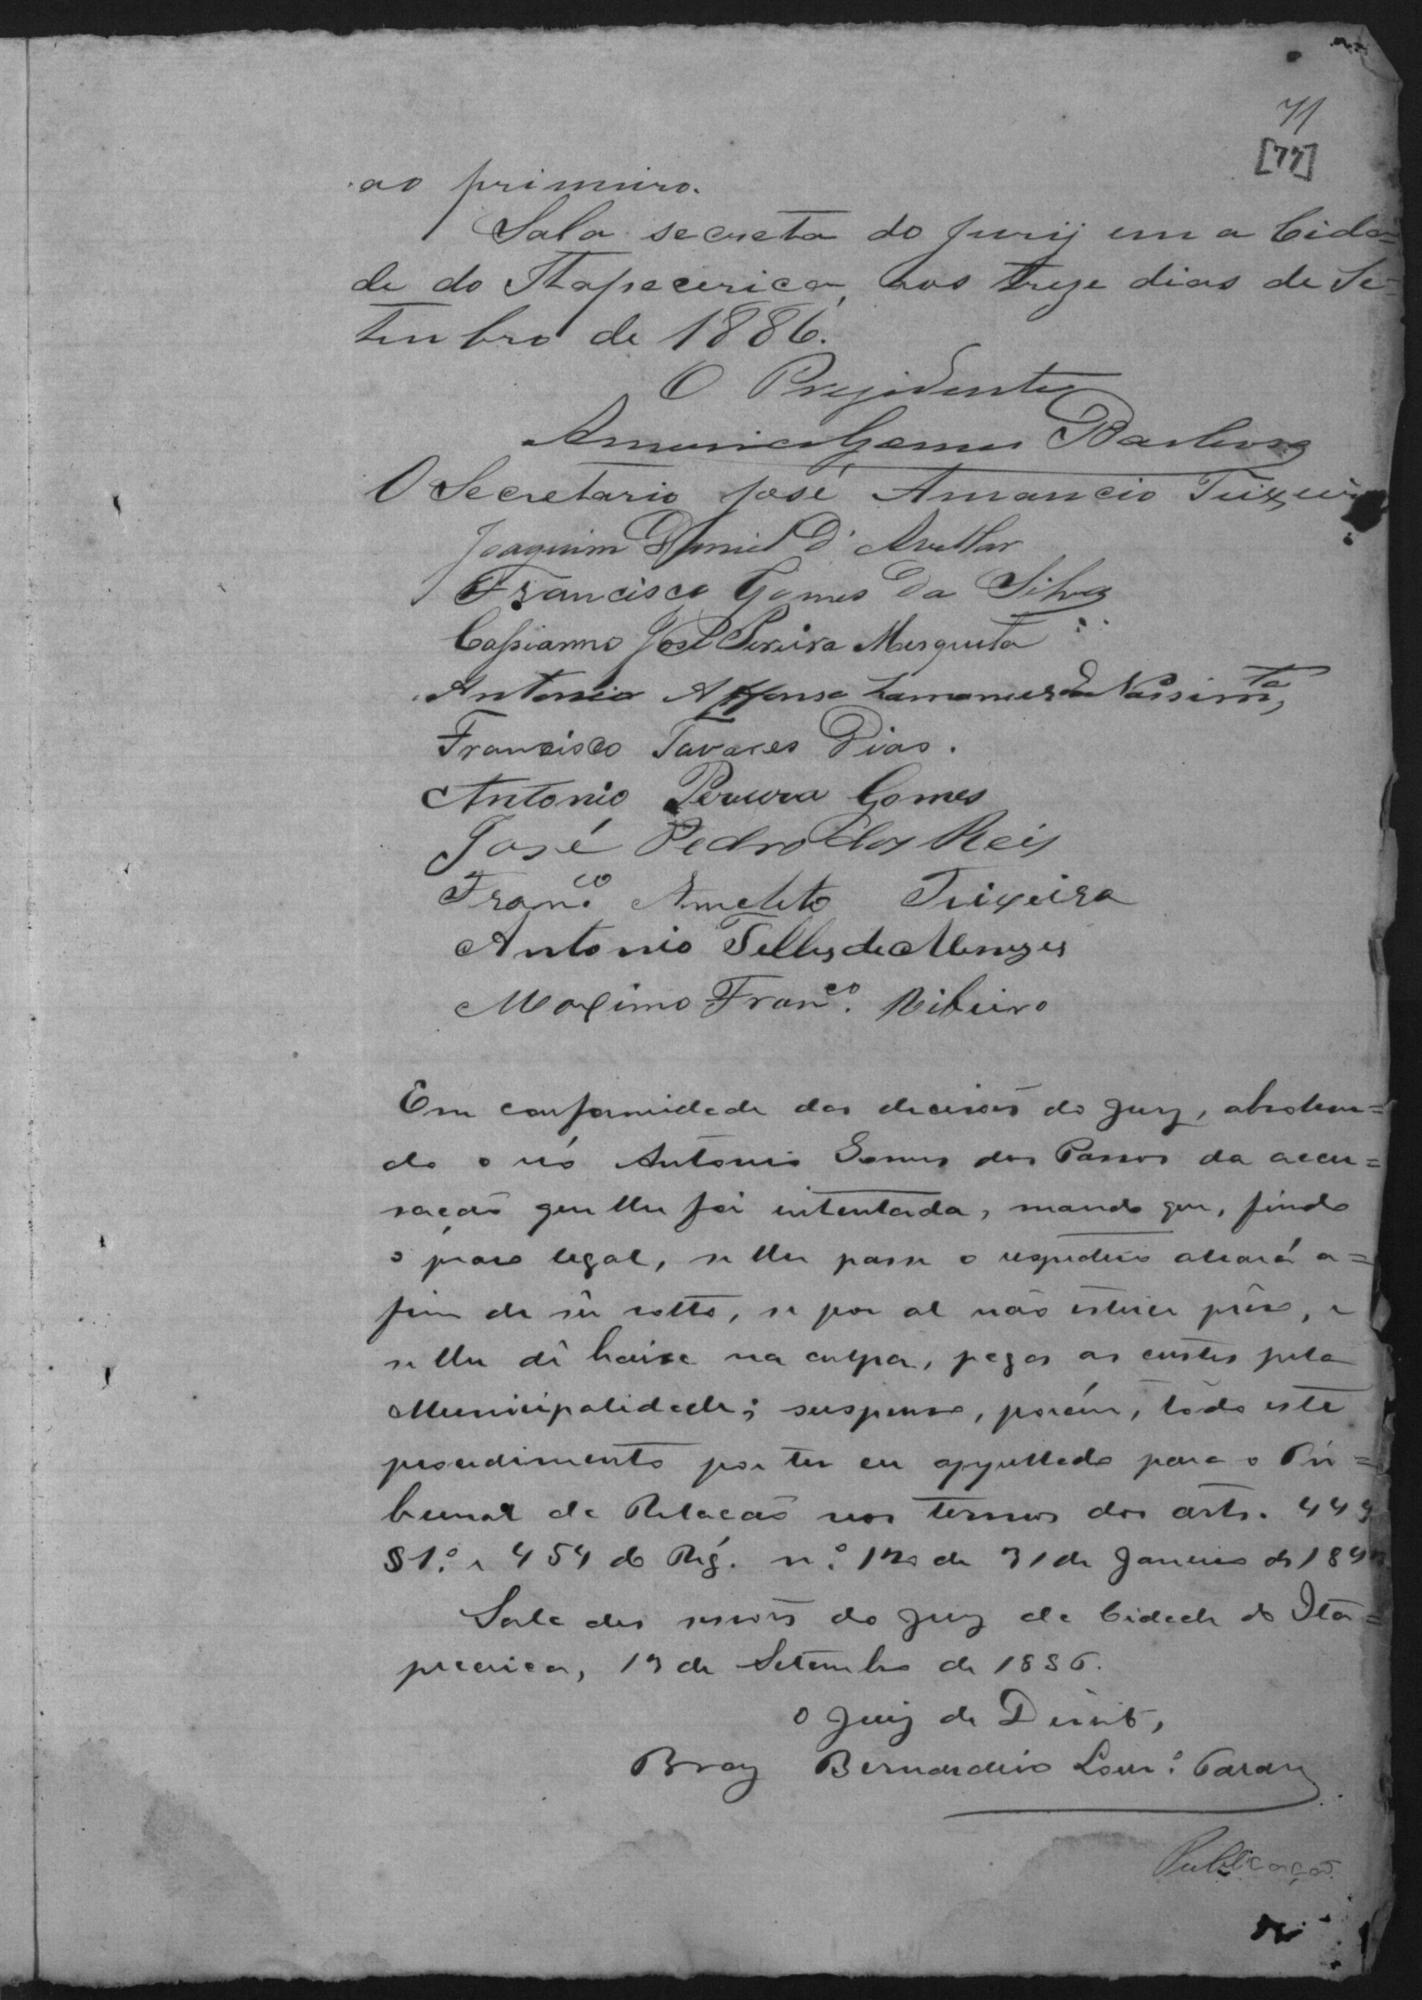 71
[77]
ao primeiro.
Sala secreta do Jury em a Cida=
de do Itapecerica, aos treze dias de Se=
tembro de 1886.
O Prezidente
Americo Gomes Barbosa
O Secretario José Amancio Teixeira
Joaquim Daniel d'Avellar
Francisco Gomes da Silva
Cassianno José Pereira Mesquita
Antonio Affonso Lamounier
Francisco Tavares Dias.
Antonio Pereira Gomes
José Pedro dos Reis
Franco. Anacleto Teixeira
Antonio Telles de Menezes
Maximo Franco. Ribeiro
Em conformidade das decisões do Jury, absolven=
do o réo Antonio Gomes dos Passos da accu=
sação que lhe foi intentada, mando que, findo
o praso legal, se lhe passe o respectivo alvará a=
fim de ser solto, se por al não estiver prêso, e
se lhe dê baixa na culpa, pagas as custas pela
Municipalidade; suspenso, porém, todo este
procedimento por ter eu appellado para o Tri=
bunal da Relação nos termos dos arts. 449
§1.º e 454 do Reg. n.º 120 de 31 de Janeiro de 184
Sala das sessões do Jury da Cidade do Ita=
pecerica, 13 de Setembro de 1886.
O Juiz de Direito,
Braz Bernardino Lour.º
Publicação